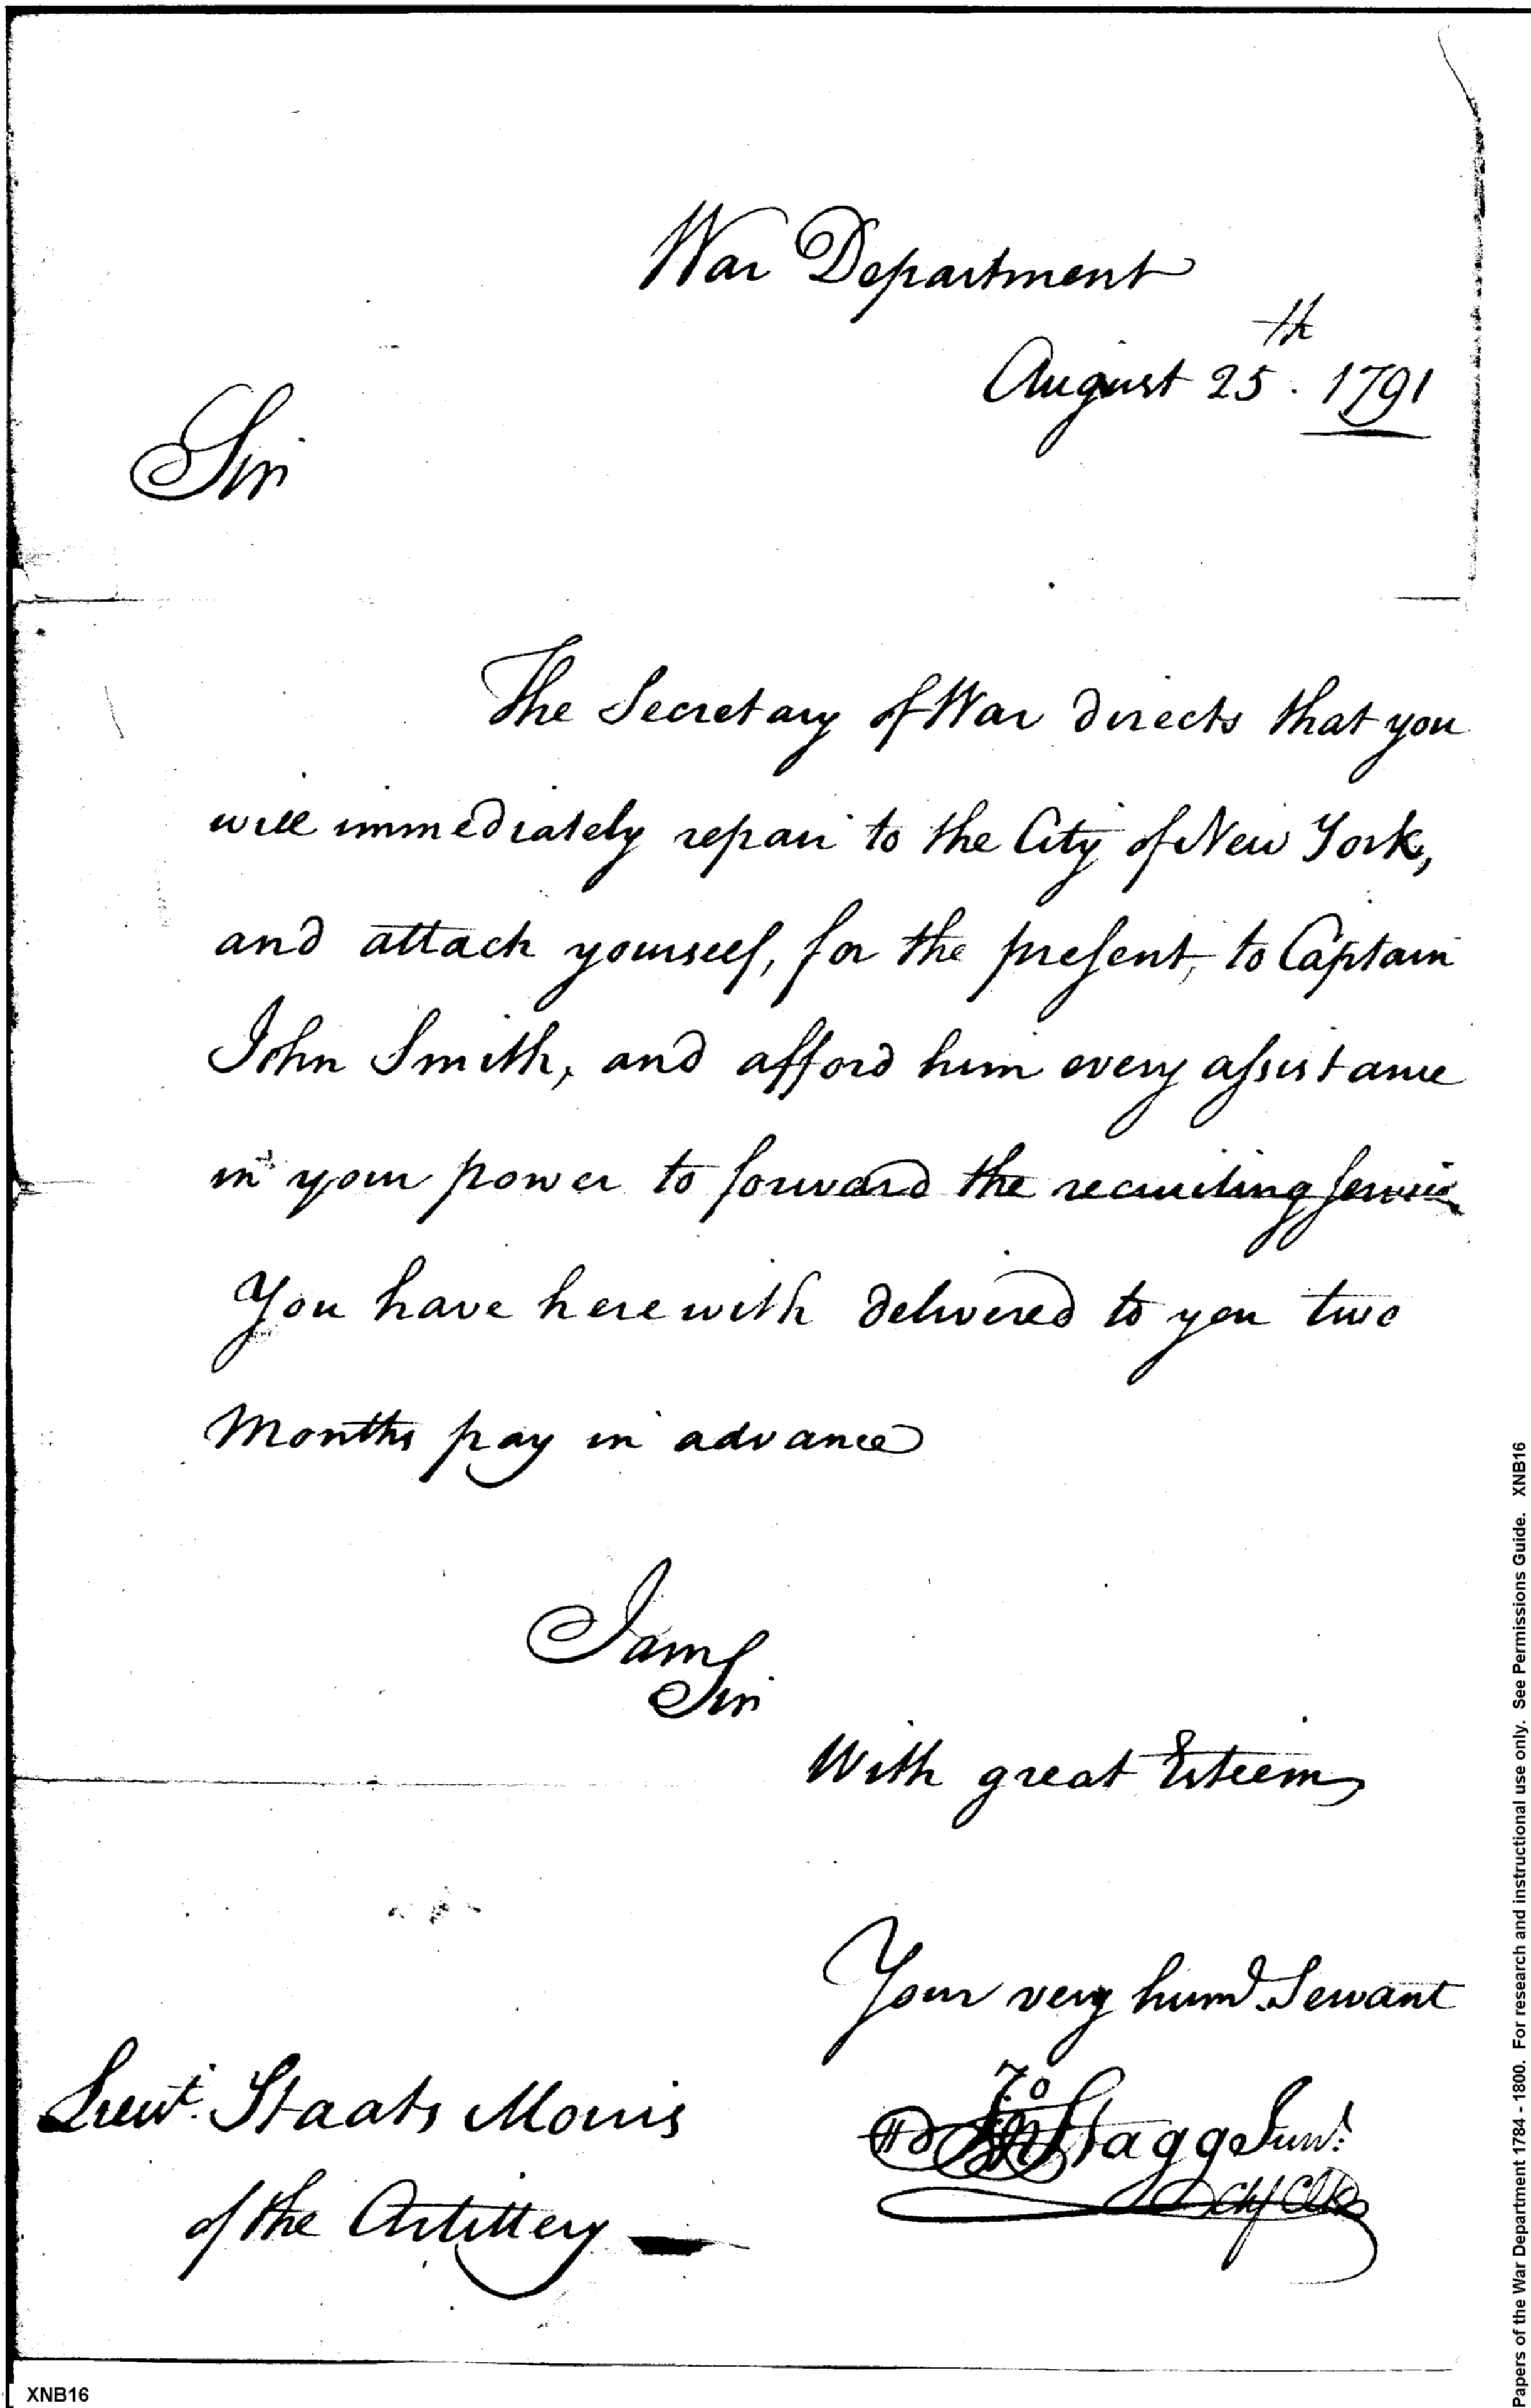 War Department
August 25th. 1791
Sir
The Secretary of War directs that you
will immediately repair to the City of New York,
and attach yourself, for the present, to Captain
John Smith, and afford him every assistance
in your power to forward the recruiting service
You have herewith delivered to you two
Months pay in advance
I am
Sir
With great Esteem
Your very hum. Servant
Jo Stagg Junr.
Chf Clk
Lieut. Staats Morris
of the Artillery
XNB16
Papers of the War Department 1784 - 1800. For research and instructional use only. See Permissions Guide. XNB16